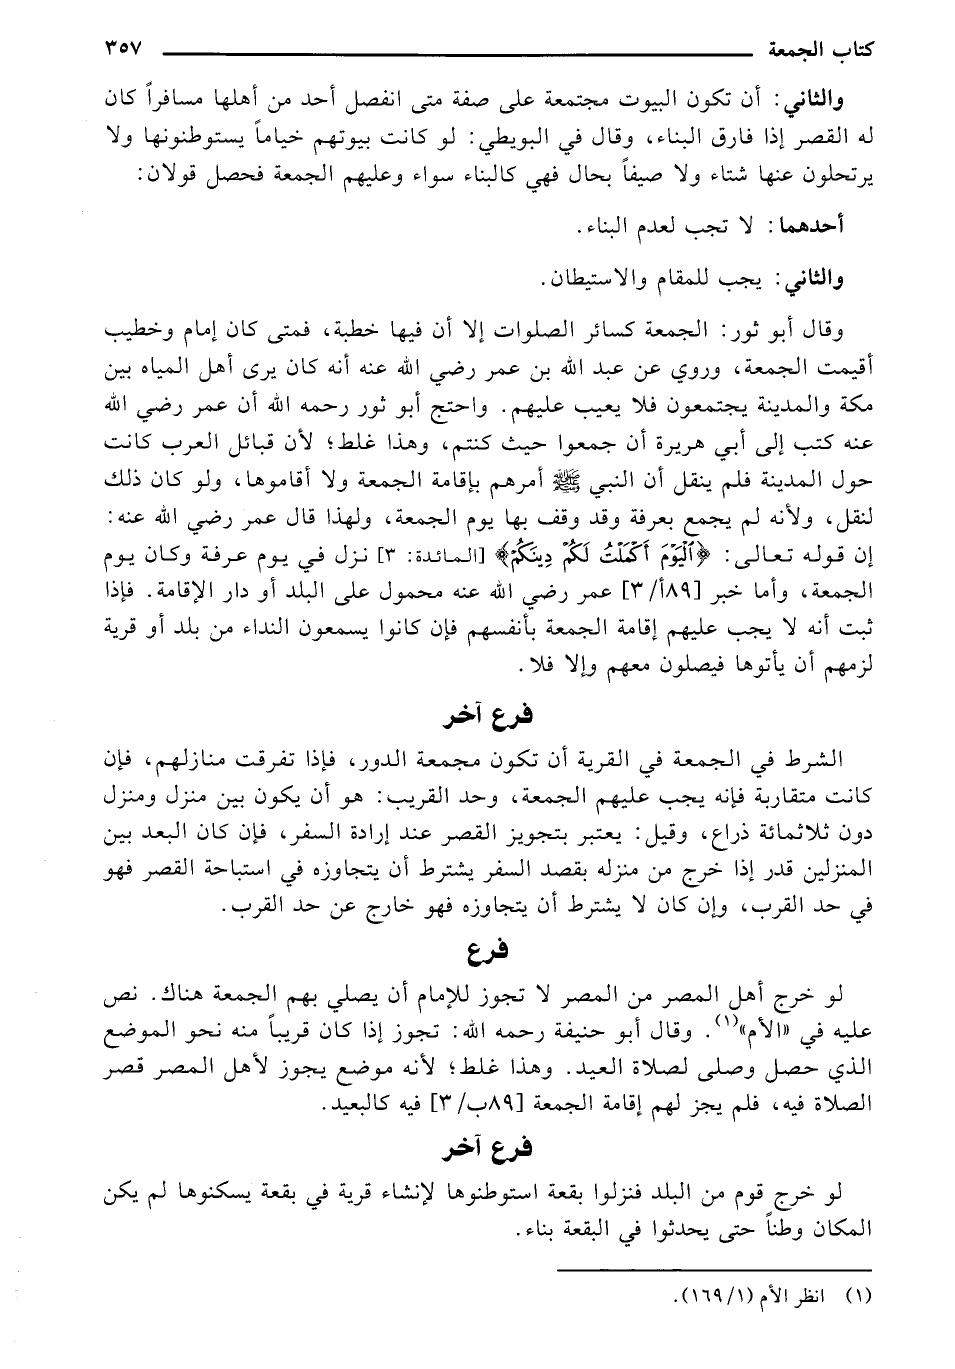 كتاب الجمعة ٣٥٧
والثاني: أن تكون البيوت مجتمعة على صفة متى انفصل أحد من أهلها مسافراً كان
له القصر إذا فارق البناء، وقال في البويطي: لو كانت بيوتهم خياماً يستوطنونها ولا
يرتحلون عنها شتاء ولا صيفاً بحال فهي كالبناء سواء وعليهم الجمعة فحصل قولان:
أحدهما: لا تجب لعدم البناء.
والثاني: يجب للمقام والاستيطان.
وقال أبو ثور: الجمعة كسائر الصلوات إلا أن فيها خطبة، فمتى كان إمام وخطيب
أقيمت الجمعة، وروي عن عبد الله بن عمر رضي الله عنه أنه كان يرى أهل المياه بين
مكة والمدينة يجتمعون فلا يعيب عليهم. واحتج أبو ثور رحمه الله أن عمر رضي الله
عنه كتب إلى أبي هريرة أن جمعوا حيث كنتم، وهذا غلط؛ لأن قبائل العرب كانت
حول المدينة فلم ينقل أن النبي ﷺ أمرهم بإقامة الجمعة ولا أقاموها، ولو كان ذلك
لنقل، ولأنه لم يجمع بعرفة وقد وقف بها يوم الجمعة، ولهذا قال عمر رضي الله عنه:
إن قوله تعالى: ﴿ٱلْيَوْمَ أَكْمَلْتُ لَكُمْ دِينَكُمْ﴾ [المائدة: ٣] نزل في يوم عرفة وكان يوم
الجمعة، وأما خبر [٨٩أ/ ٣] عمر رضي الله عنه محمول على البلد أو دار الإقامة. فإذا
ثبت أنه لا يجب عليهم إقامة الجمعة بأنفسهم فإن كانوا يسمعون النداء من بلد أو قرية
لزمهم أن يأتوها فيصلون معهم وإلا فلا.
فرع آخر
الشرط في الجمعة في القرية أن تكون مجمعة الدور، فإذا تفرقت منازلهم، فإن
كانت متقاربة فإنه يجب عليهم الجمعة، وحد القريب: هو أن يكون بين منزل ومنزل
دون ثلاثمائة ذراع، وقيل: يعتبر بتجويز القصر عند إرادة السفر، فإن كان البعد بين
المنزلين قدر إذا خرج من منزله بقصد السفر يشترط أن يتجاوزه في استباحة القصر فهو
في حد القرب، وإن كان لا يشترط أن يتجاوزه فهو خارج عن حد القرب.
فرع
لو خرج أهل المصر من المصر لا تجوز للإمام أن يصلي بهم الجمعة هناك. نص
عليه في «الأم»(١). وقال أبو حنيفة رحمه الله: تجوز إذا كان قريباً منه نحو الموضع
الذي حصل وصلى لصلاة العيد. وهذا غلط؛ لأنه موضع يجوز لأهل المصر قصر
الصلاة فيه، فلم يجز لهم إقامة الجمعة [٨٩ب/ ٣] فيه كالبعيد.
فرع آخر
لو خرج قوم من البلد فنزلوا بقعة استوطنوها لإنشاء قرية في بقعة يسكنوها لم يكن
المكان وطناً حتى يحدثوا في البقعة بناء.
(١) انظر الأم (١/ ١٦٩).